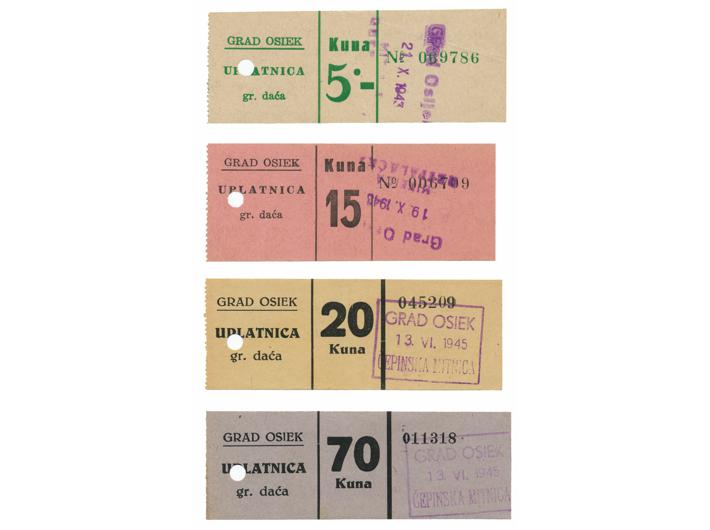 GRAD OSIEK
UPLATNICA
gr. daća
Kuna
5·-
№ 069786
21. X. 1943
Grad Osijek
GRAD OSIEK
UPLATNICA
gr. daća
Kuna
15
№ 006709
19. X. 1943
Grad
GRAD OSIEK
UPLATNICA
gr. daća
20
Kuna
045209
GRAD OSIEK
13. VI. 1945
ČEPINSKA MITNICA
GRAD OSIEK
UPLATNICA
gr. daća
70
Kuna
011318
GRAD OSIEK
13. VI. 1945
ČEPINSKA MITNICA